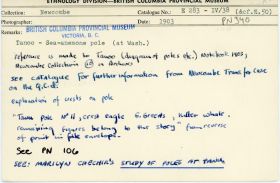 ETHNOLOGY DIVISION—BRITISH COLUMBIA PROVINCIAL MUSEUM
Collection: Newcombe
Catalogue No.: E 283 - IV/38
Photographer:
Date: 1903
PN 340
Remarks
BRITISH COLUMBIA PROVINCIAL MUSEUM
VICTORIA, B. C.
Tanoo - Sea-anemone pole (at Wash.)
reference is made to Tanoo (diagrams of poles etc.) Notebook 1903,
Newcombe Collection @ Archives
SEE catalogue for further information from Newcombe
on the Q.C.I.
explanation of crests on pole
"Tanu Pole No 11, crest eagle killer whale.
remaining figures belong to the story" from reverse
of print in file envelope.
See PN 106
SEE: MARILYN CHECHIK'S STUDY OF POLES AT TANU